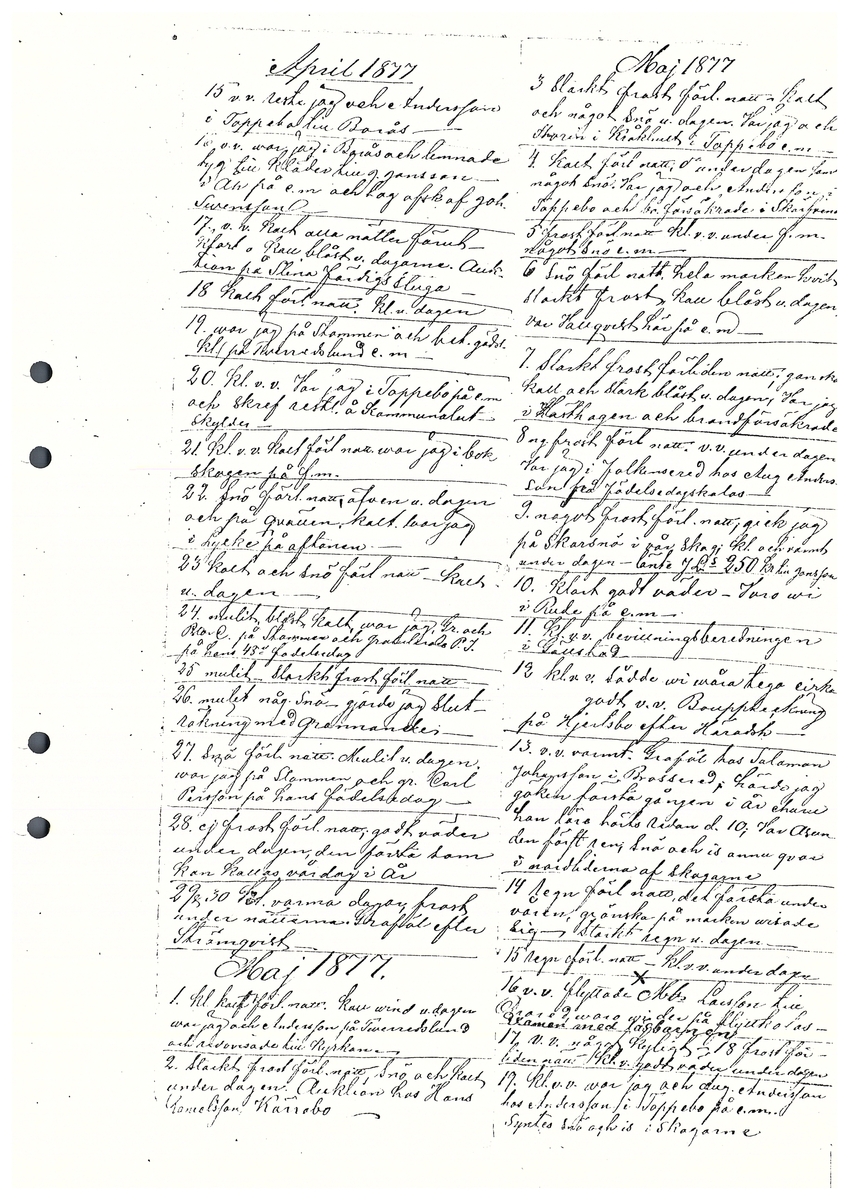 April 1877
15 v.v. reste jag och Andersson
i Toppebo till Borås
v.v. war jag i Borås och lemnade
tyg till kläder till
i År på e.m och tog afsk af Joh.
Swensson
17, v.v. Kalt alla nätter förut
klart o kall blåst u. dagarne. Auk-
tion på Stina Färdigs stuga
18 Kalt förl. natt. Kl. u. dagen
19. war jag på Stommen och
kl på Twerredslund e.m
20. Kl. v.v. Var jag i Toppebo på e.m
och skref restl. å Kommunalut-
skylder
21. Kl. v.v. Kalt förl natt war jag i bok-
skogen på f.m.
22. Snö förl. natt, äfven u. dagen
och på qvällen, kalt. war jag
i Lycke på aftonen
23 Kalt och snö förl natt - Kalt
u. dagen
24. mulit, blåst kalt, war jag, Gr. och
på Stommen och gratulerade P.J.
på hans 43de födelsedag
25 mulit - starkt frost förl. natt
26. mulet någ. snö - gjorde jag slut-
räkning med Grannandes
27. Snö förl. natt. Mulit u. dagen,
war jag på Stommen och gr. Carl
Persson på hans födelsedag
28. ej frost förl. natt, godt väder
under dagen, den första som
kan kallas vårdag i År
29 & 30 Kl. varma dagar, frost
under nätterna. Grafölet efter
Strömqvist
Maj 1877.
1. Kl. kalt förl. natt. Kall wind u. dagen
war jag och Andersson på Twerredslund
och redovisade till Kyrkan
2. Starkt frost förl. natt, Snö och kalt
under dagen. Auktion hos Hans
Danielsson, Kärrabo
Maj 1877
3 Starkt frost förl. natt - Kalt
och något Snö u. dagen. Var jag och
Storm i Kråkhult i Toppebo e.m
4. Kalt förl natt, o under dagen
något Snö. Var jag och Andersson i
Toppebo och försäkrade i
5 frost förl natt Kl. v.v. under f.m.
något Snö e.m
6 Snö förl natt. hela marken hvit
starkt frost, kall blåst u. dagen
var Hallqvist här på e.m
7. Starkt frost förliden natt, ganska
kall och stark blåst u. dagen, Var jag
i Hästhagen och brandförsäkrade
8 ng frost förl natt. v.v. under dagen
Var jag i Falkensered hos Aug Anders-
son på Födelsedagskalas
9. något frost förl. natt, gick jag
på Skarsnö i vår skog kl. och varmt
under dagen - lånte 250 kr till Jonsson
10. Klart godt väder - Voro wi
i Rude på e.m
11. Kl. v.v. bevillningsberedningen
i
12 Kl. v.v. sådde wi wåra tega cirka
godt v.v. Bouppteckning
på Hjertsbo efter Häradsh
13. v.v. varmt. Graföl hos Salamon
Johansson i Brossered, hörde jag
göken första gången i År
han lära hörts redan d. 10; Var Åsun-
den först ren, snö och is ännu qvar
i nordsiderna af skogarne
14 regn förl natt, det första under
våren, grönska på marken wisade
sig - starkt regn u. dagen
15 regn förl. natt - Kl. v.v. under dagen
16 v.v. flyttade Larsson till
waro wi der på flyttkalas -
Examen med Lagbarnen
17. v.v. något kyligt - 18 frost för-
liden natt Kl. v. godt väder under dagen
19. Kl. v.v. war jag och Aug. Andersson
hos Andersson i Toppebo på e.m.
Syntes snö och is i skogarne